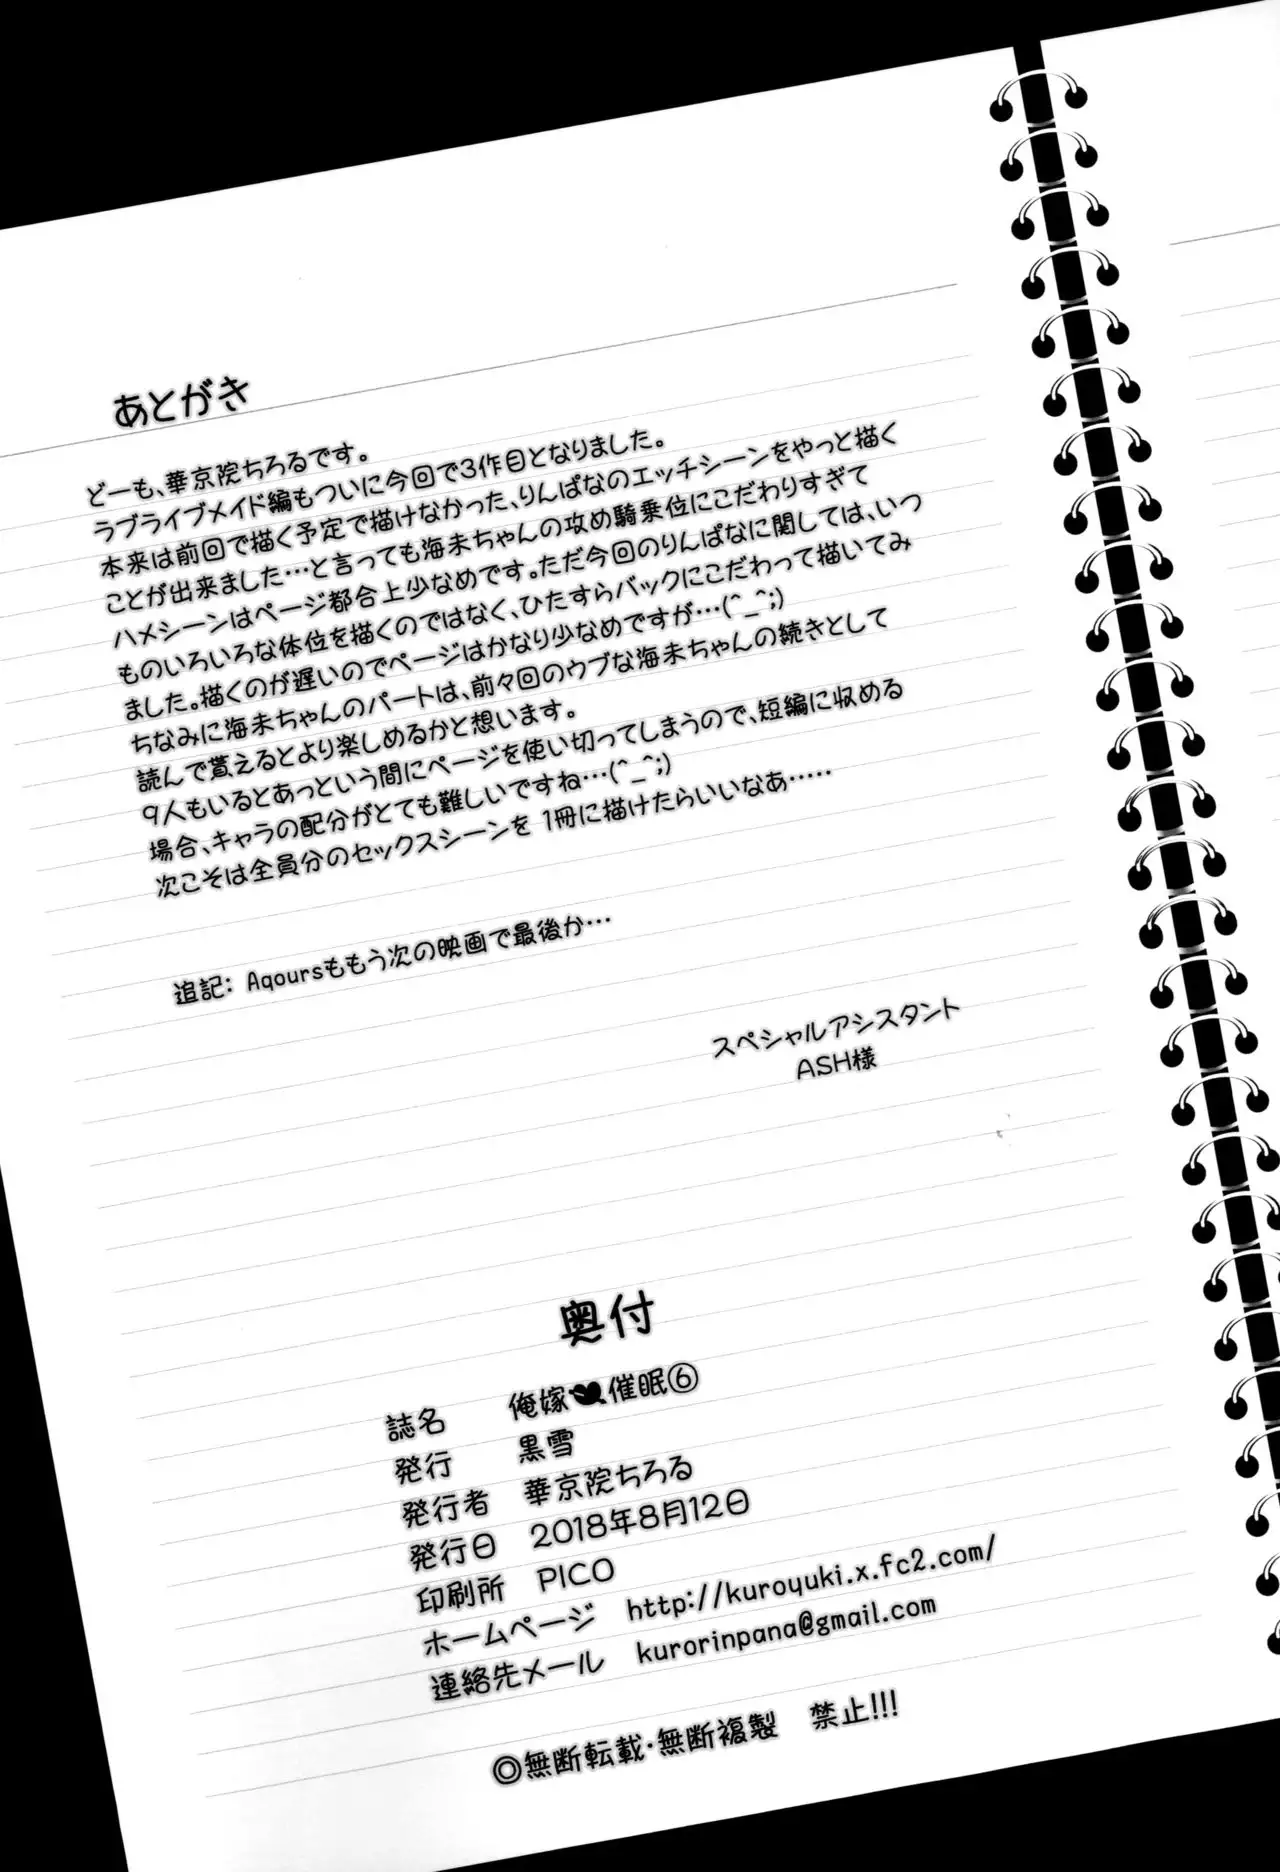 あとがき
どーも、華京院ちろるです。
ラブライブメイド編もついに今回で3作目となりました。
本来は前回で描く予定で描けなかった、りんぱなのエッチシーンをやっと描く
ことが出来ました…と言っても海未ちゃんの攻め騎乗位にこだわりすぎて
ハメシーンはページ都合上少なめです。ただ今回のりんぱなに関しては、いつ
ものいろいろな体位を描くのではなく、ひたすらバックにこだわって描いてみ
ました。描くのが遅いのでページはかなり少なめですが…(^_^;)
ちなみに海未ちゃんのパートは、前々回のウブな海未ちゃんの続きとして
読んで貰えるとより楽しめるかと想います。
9人もいるとあっという間にページを使い切ってしまうので、短編に収める
場合、キャラの配分がとても難しいですね…(^_^;)
次こそは全員分のセックスシーンを 1冊に描けたらいいなあ……
追記: Aqoursももう次の映画で最後か…
スペシャルアシスタント
ASH様
奥付
誌名 俺嫁催眠⑥
発行 黒雪
発行者 華京院ちろる
発行日 2018年8月12日
印刷所 PICO
ホームページ http://kuroyuki.x.fc2.com/
連絡先メール kurorinpana@gmail.com
◎無断転載・無断複製 禁止!!!